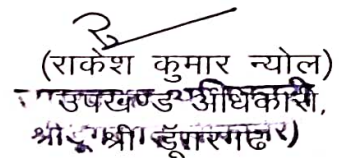 (राकेश कुमार न्योल)
उपखण्ड अधिकारी,
श्री डूँगरगढ)